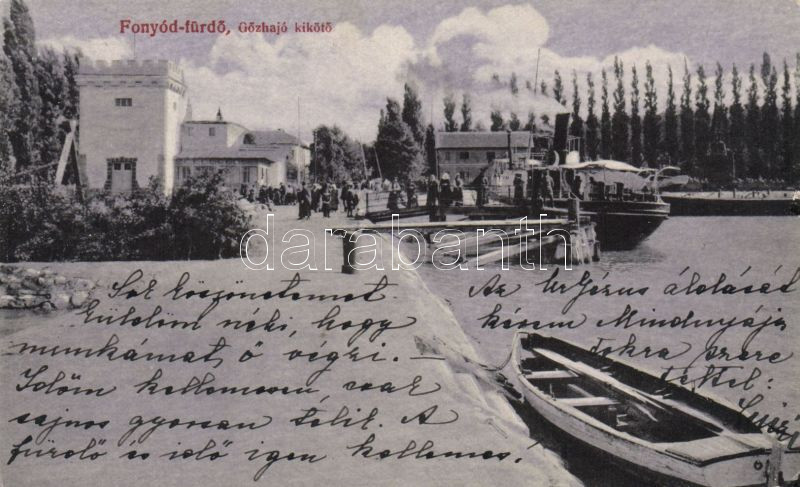 Fonyód-fürdő, Gőzhajó kikötő
darabanth.com
Sok köszönetemet
küldöm néki, hogy
munkámat ő végzi. –
Időm kellemesen, csak
sajnos gyorsan telik. A
fürdő és idő igen kellemes!
Az Úr Jézus áldását
kérem Mindnyájukra szere
tettel: